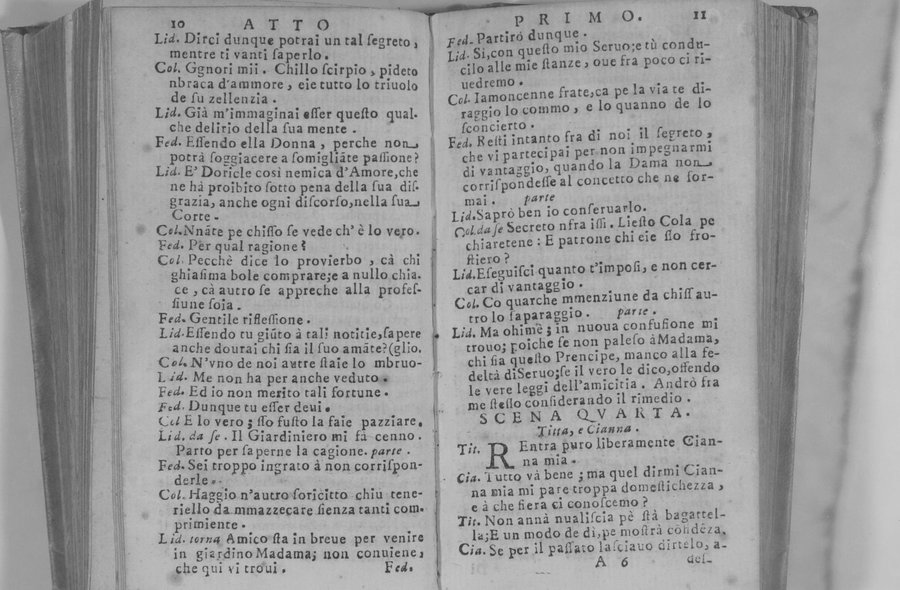 10 ATTO
Lid. Dirci dunque potrai un tal ſegreto,
mentre ti vanti ſaperlo.
Col. Ggnori mii. Chillo ſcirpio, pideto
nbraca d'ammore, eie tutto lo triuolo
de ſu zellenzia.
Lid. Già m'immaginai eſſer queſto qual.
che delirio della ſua mente.
Fed. Eſſendo ella Donna, perche non
potrà ſoggiacere a ſomigliãte paſſione?
Lid. E' Doricle cosi nemica d'Amore, che
ne hà proibito ſotto pena della ſua diſ.
grazia, anche ogni diſcorſo, nella ſua
Corte.
Col. Nnãte pe chiſſo ſe vede ch' è lo vero.
Fed. Per qual ragione?
Col. Pecchè dice lo provierbio, cà chi
ghiaſima bole comprare; e a nullo chia.
ce, cà autro ſe appreche alla profeſ-
ſiune ſoia.
Fed. Gentile rifleſſione.
Lid. Eſſendo tu giũto à tali notitie, ſapere
anche dourai chi ſia il ſuo amãte? (glio.
Col. N'vno de noi autre ſtaie lo mbruo-
Lid. Me non ha per anche veduto.
Fed. Ed io non merito tali fortune.
Fed. Dunque tu eſſer deui.
Col E lo vero; ſſo fuſto la faie pazziare.
Lid. da ſe. Il Giardiniero mi fà cenno.
Parto per ſaperne la cagione. parte.
Fed. Sei troppo ingrato à non corriſpon-
derle.
Col. Haggio n'autro ſoricitto chiu tene-
riello da mmazzecare ſienza tanti com.
primiente.
Lid. torna Amico ſta in breue per venire
in giardino Madama; non conuiene,
che qui vi troui. Fed.
PRIMO. 11
Fed. Partirò dunque.
Lid. Si, con queſto mio Seruo; e tù condu-
cilo alle mie ſtanze, oue fra poco ci ri-
uedremo.
Col. Iamoncenne frate, ca pe la via te di-
raggio lo commo, e lo quanno de lo
ſconcierto.
Fed. Reſti intanto fra di noi il ſegreto,
che vi partecipai per non impegnarmi
di vantaggio, quando la Dama non
corriſpondeſſe al concetto che ne for-
mai. parte
Lid. Saprò ben io conſeruarlo.
Col. da ſe Secreto nfra iſſi. Lieſto Cola pe
chiaretene: E patrone chi eie ſſo fro-
ſtiero?
Lid. Eſeguiſci quanto t'impoſi, e non cer-
car di vantaggio.
Col. Co quarche mmenziune da chiſſ au-
tro lo ſaparaggio. parte.
Lid. Ma ohimè; in nuoua confuſione mi
trouo; poiche ſe non paleſo à Madama,
chi ſia queſto Prencipe, manco alla fe-
deltà di Seruo; ſe il vero le dico, offendo
le vere leggi dell'amicitia. Andrò fra
me ſteſſo conſiderando il rimedio.
SCENA QVARTA.
Titta, e Cianna.
Tit. REntra puro liberamente Cian-
na mia.
Cia. Tutto và bene; ma quel dirmi Cian-
na mia mi pare troppa domeſtichezza,
e à che fiera ci conoſcemo?
Tit. Non annà nualiſcia pè ſtà bagattel-
la; E un modo de dì, pe moſtrà cõfidẽza.
Cia. Se per il paſſato laſciavo dirtelo, a-
A 6 deſ-